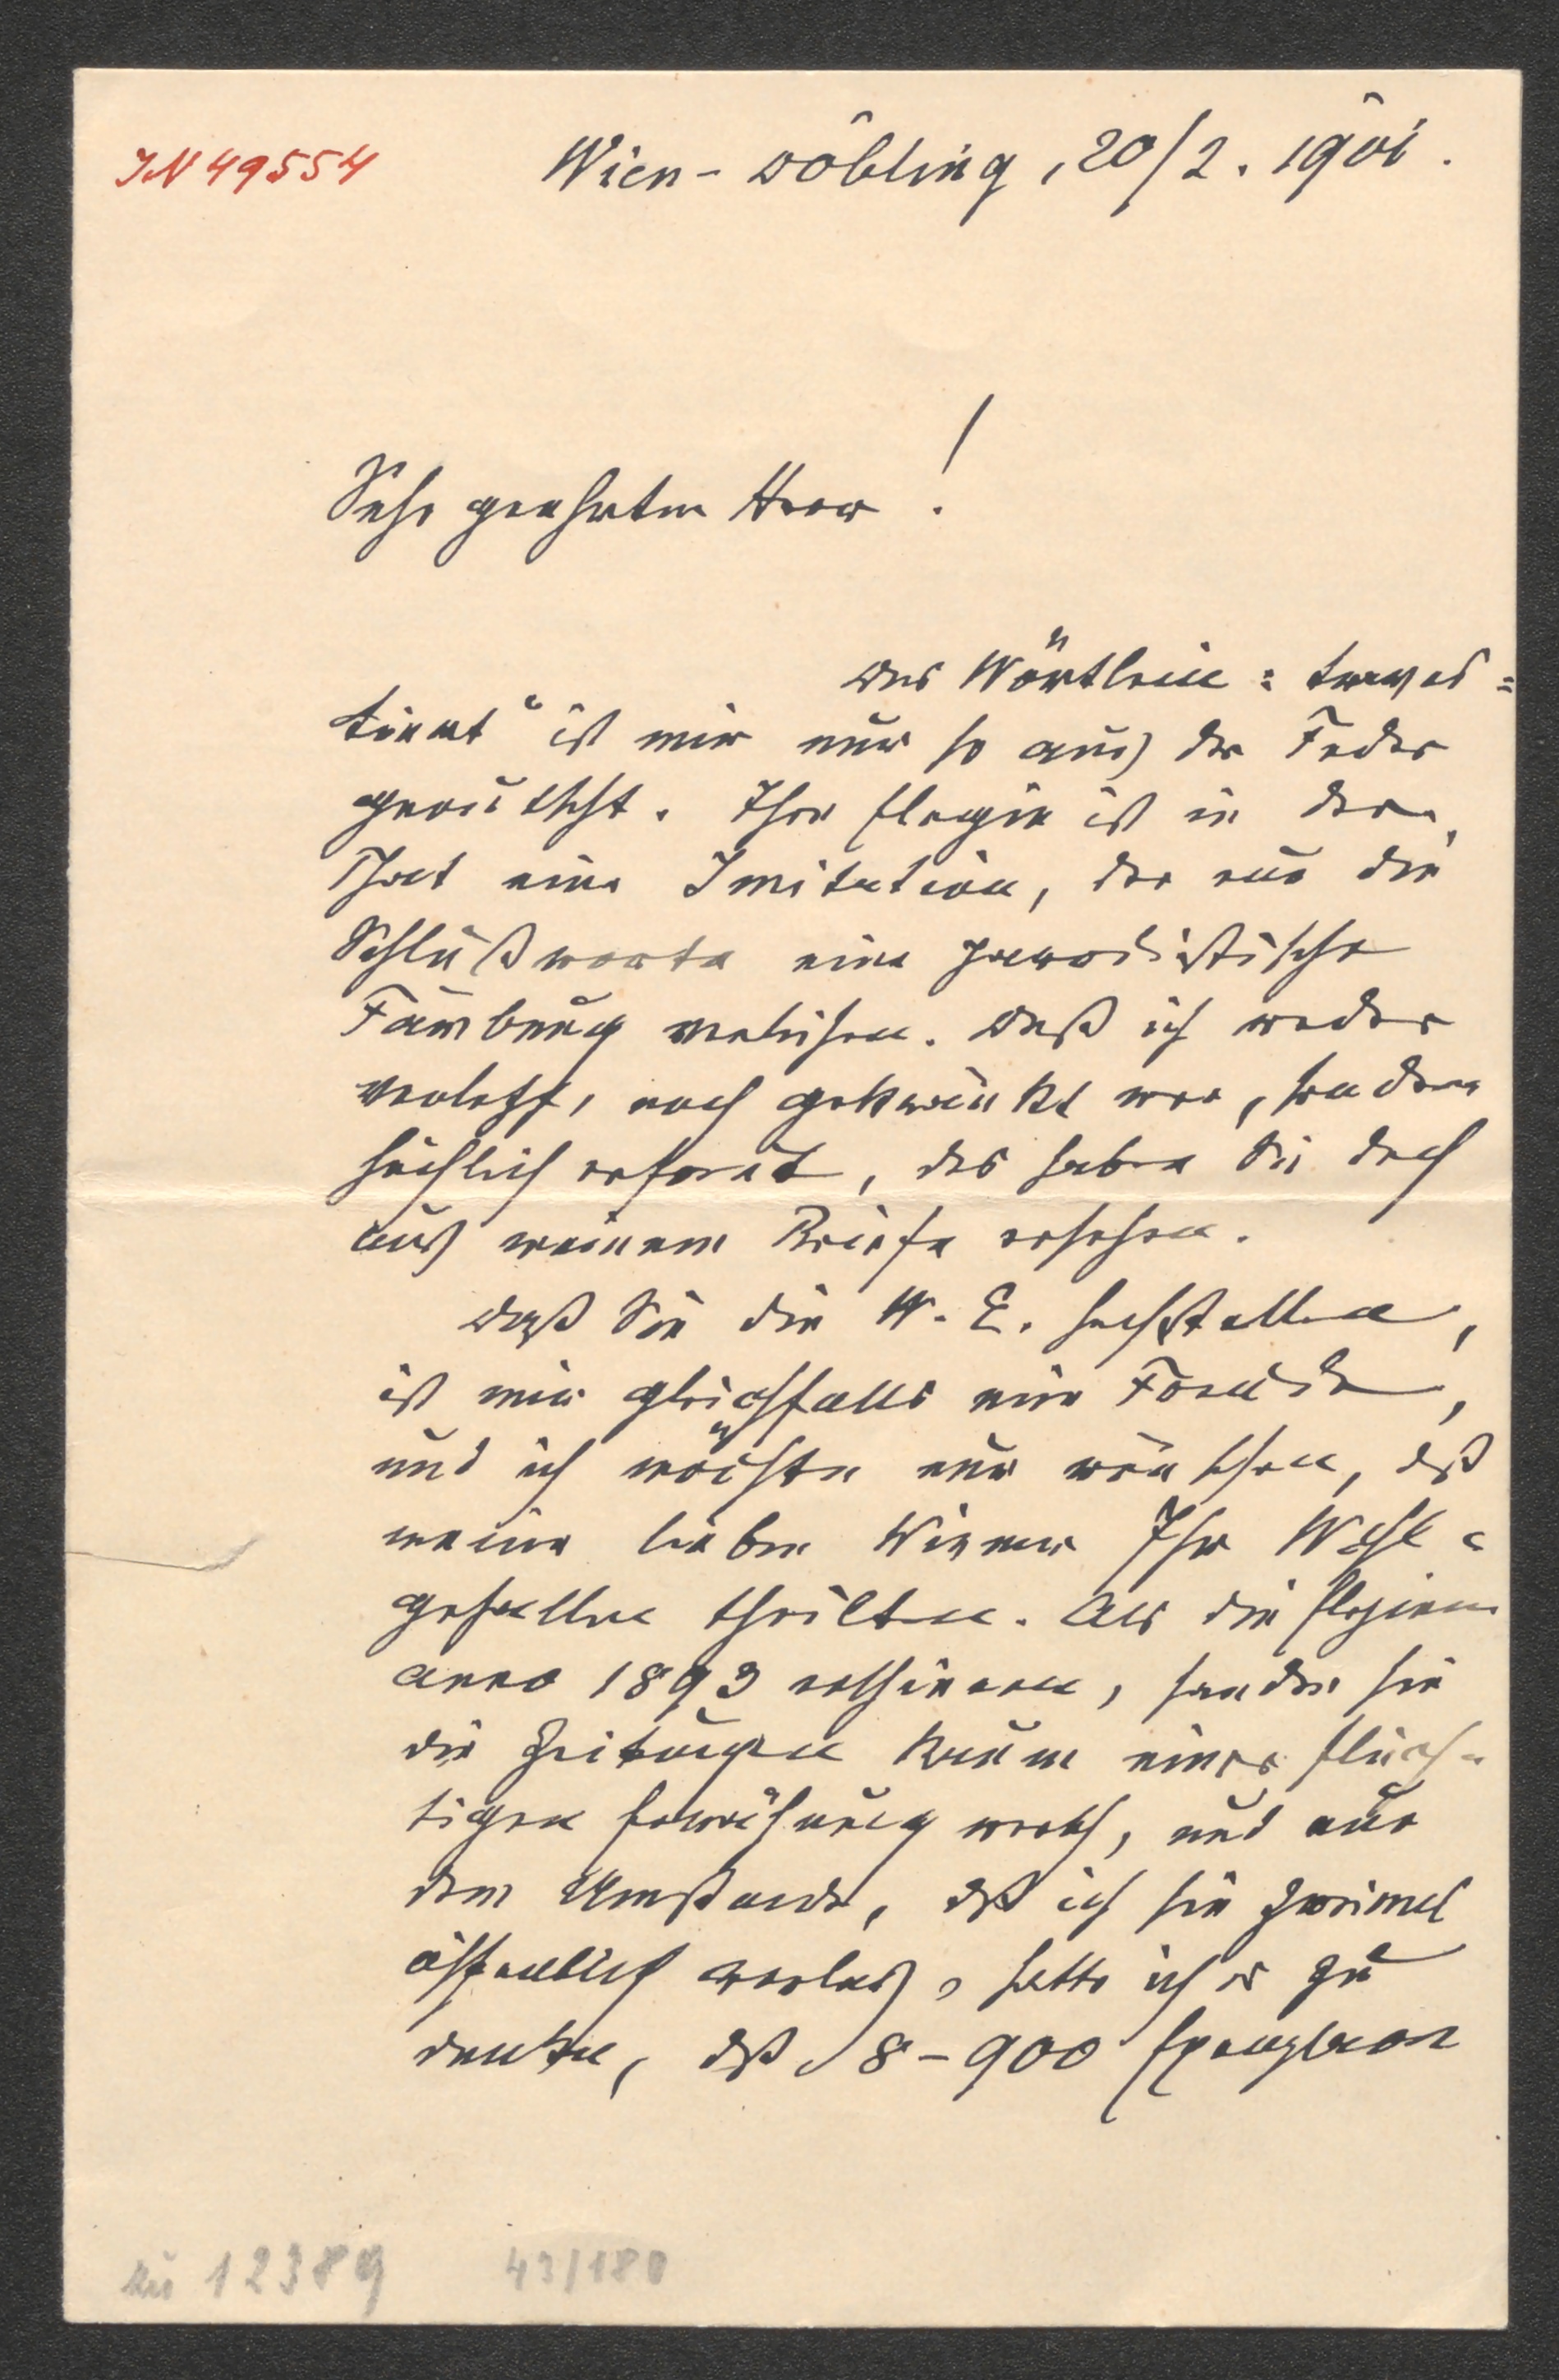 IN 49554
Wien-Döbling, 20/2. 1901.
Sehr geehrter Herr!
Das Wörtlein: traves=
tiert“ ist mir nur so aus der Feder
gerutscht. Ihre Elegie ist in der
That eine Imitation, der nur die
Schlußworte eine parodistische
Färbung verleihen. Daß ich weder
verletzt, noch gekränkt war, sondern
höchlich erfreut, das haben Sie doch
aus meinem Briefe ersehen.
Daß Sie die W. E. hochstellen,
ist mir gleichfalls eine Freude,
und ich möchte nur wünschen, daß
meine lieben Wiener Ihr Wohl=
gefallen theilten. Als die Elegieen
anno 1893 erschienen, fanden sie
die Zeitungen kaum einer flüch=
tigen Erwähnung werth, und nur
dem Umstande, daß ich sie zweimal
öffentlich vorlas, hatte ich es zu
danken, daß 8-900 Exemplare
zu 12389 43/180